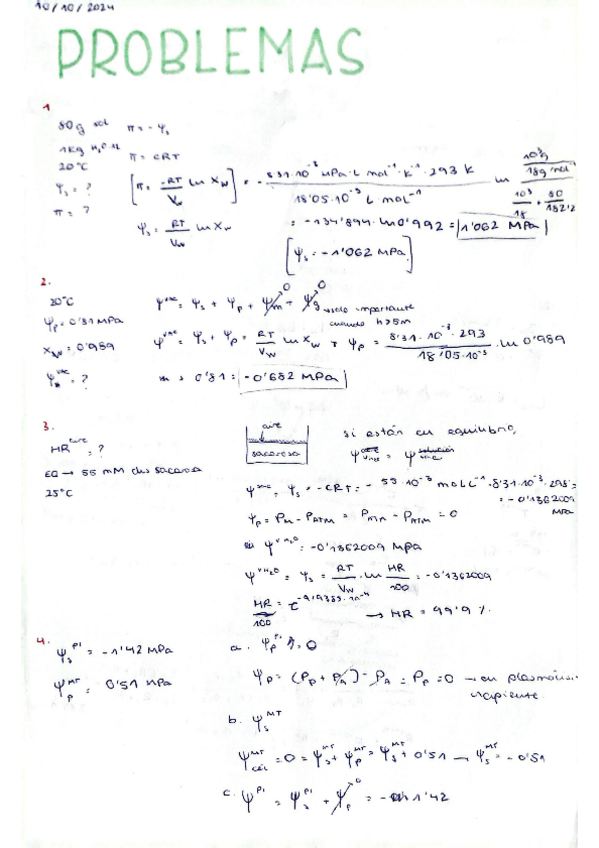 10/10/2024
PROBLEMAS
1
80g sol π = -Ψs
1kg H₂O π = CRT
20°C
Ψs = ?
π = ?
[π = -RT/Vw ln Xw] = - 8'31·10⁻³ MPa·L·mol⁻¹·K⁻¹·293 K / 18'05·10⁻³ L mol⁻¹ ln
Ψs = RT/Vw ln Xw
= -134'894·ln 0'992 = 1'062 MPa
[Ψs = -1'062 MPa]
2.
20°C
Ψp = 0'81 MPa
Xw = 0'989
Ψvac = ?
Ψvac = Ψs + Ψp + Ψm + Ψg → solo importante
cuando h>5m
Ψvac = Ψs + Ψp = RT/Vw ln Xw + Ψp = 8'31·10⁻³·293 / 18'05·10⁻³ · ln 0'989
0'81 = -0'682 MPa
3.
HR aire = ?
EQ → 55 mM dis sacarosa
25°C
aire
sacarosa
si están en equilibrio,
Ψs = -CRT = - 55·10⁻³ mol L⁻¹·8'31·10⁻³·298 =
= -0'1362009
MPa
Ψp = PM - PATM = PATM - PATM = 0
Ψ H₂O = -0'1362009 MPa
Ψ H₂O = Ψs = RT/Vw · ln HR/100 = -0'1362009
HR/100 = → HR = 99'9 %
4.
Ψs PI = -1'42 MPa
Ψp MT = 0'51 MPa
a. Ψp PI = 0
Ψp = (Pp + PA) - PA = Pp = 0 → en
b. Ψs MT
Ψcél MT = 0 = Ψs MT + Ψp MT = Ψs MT + 0'51 → Ψs MT = -0'51
c. Ψ PI = Ψs PI + Ψp = -1'42